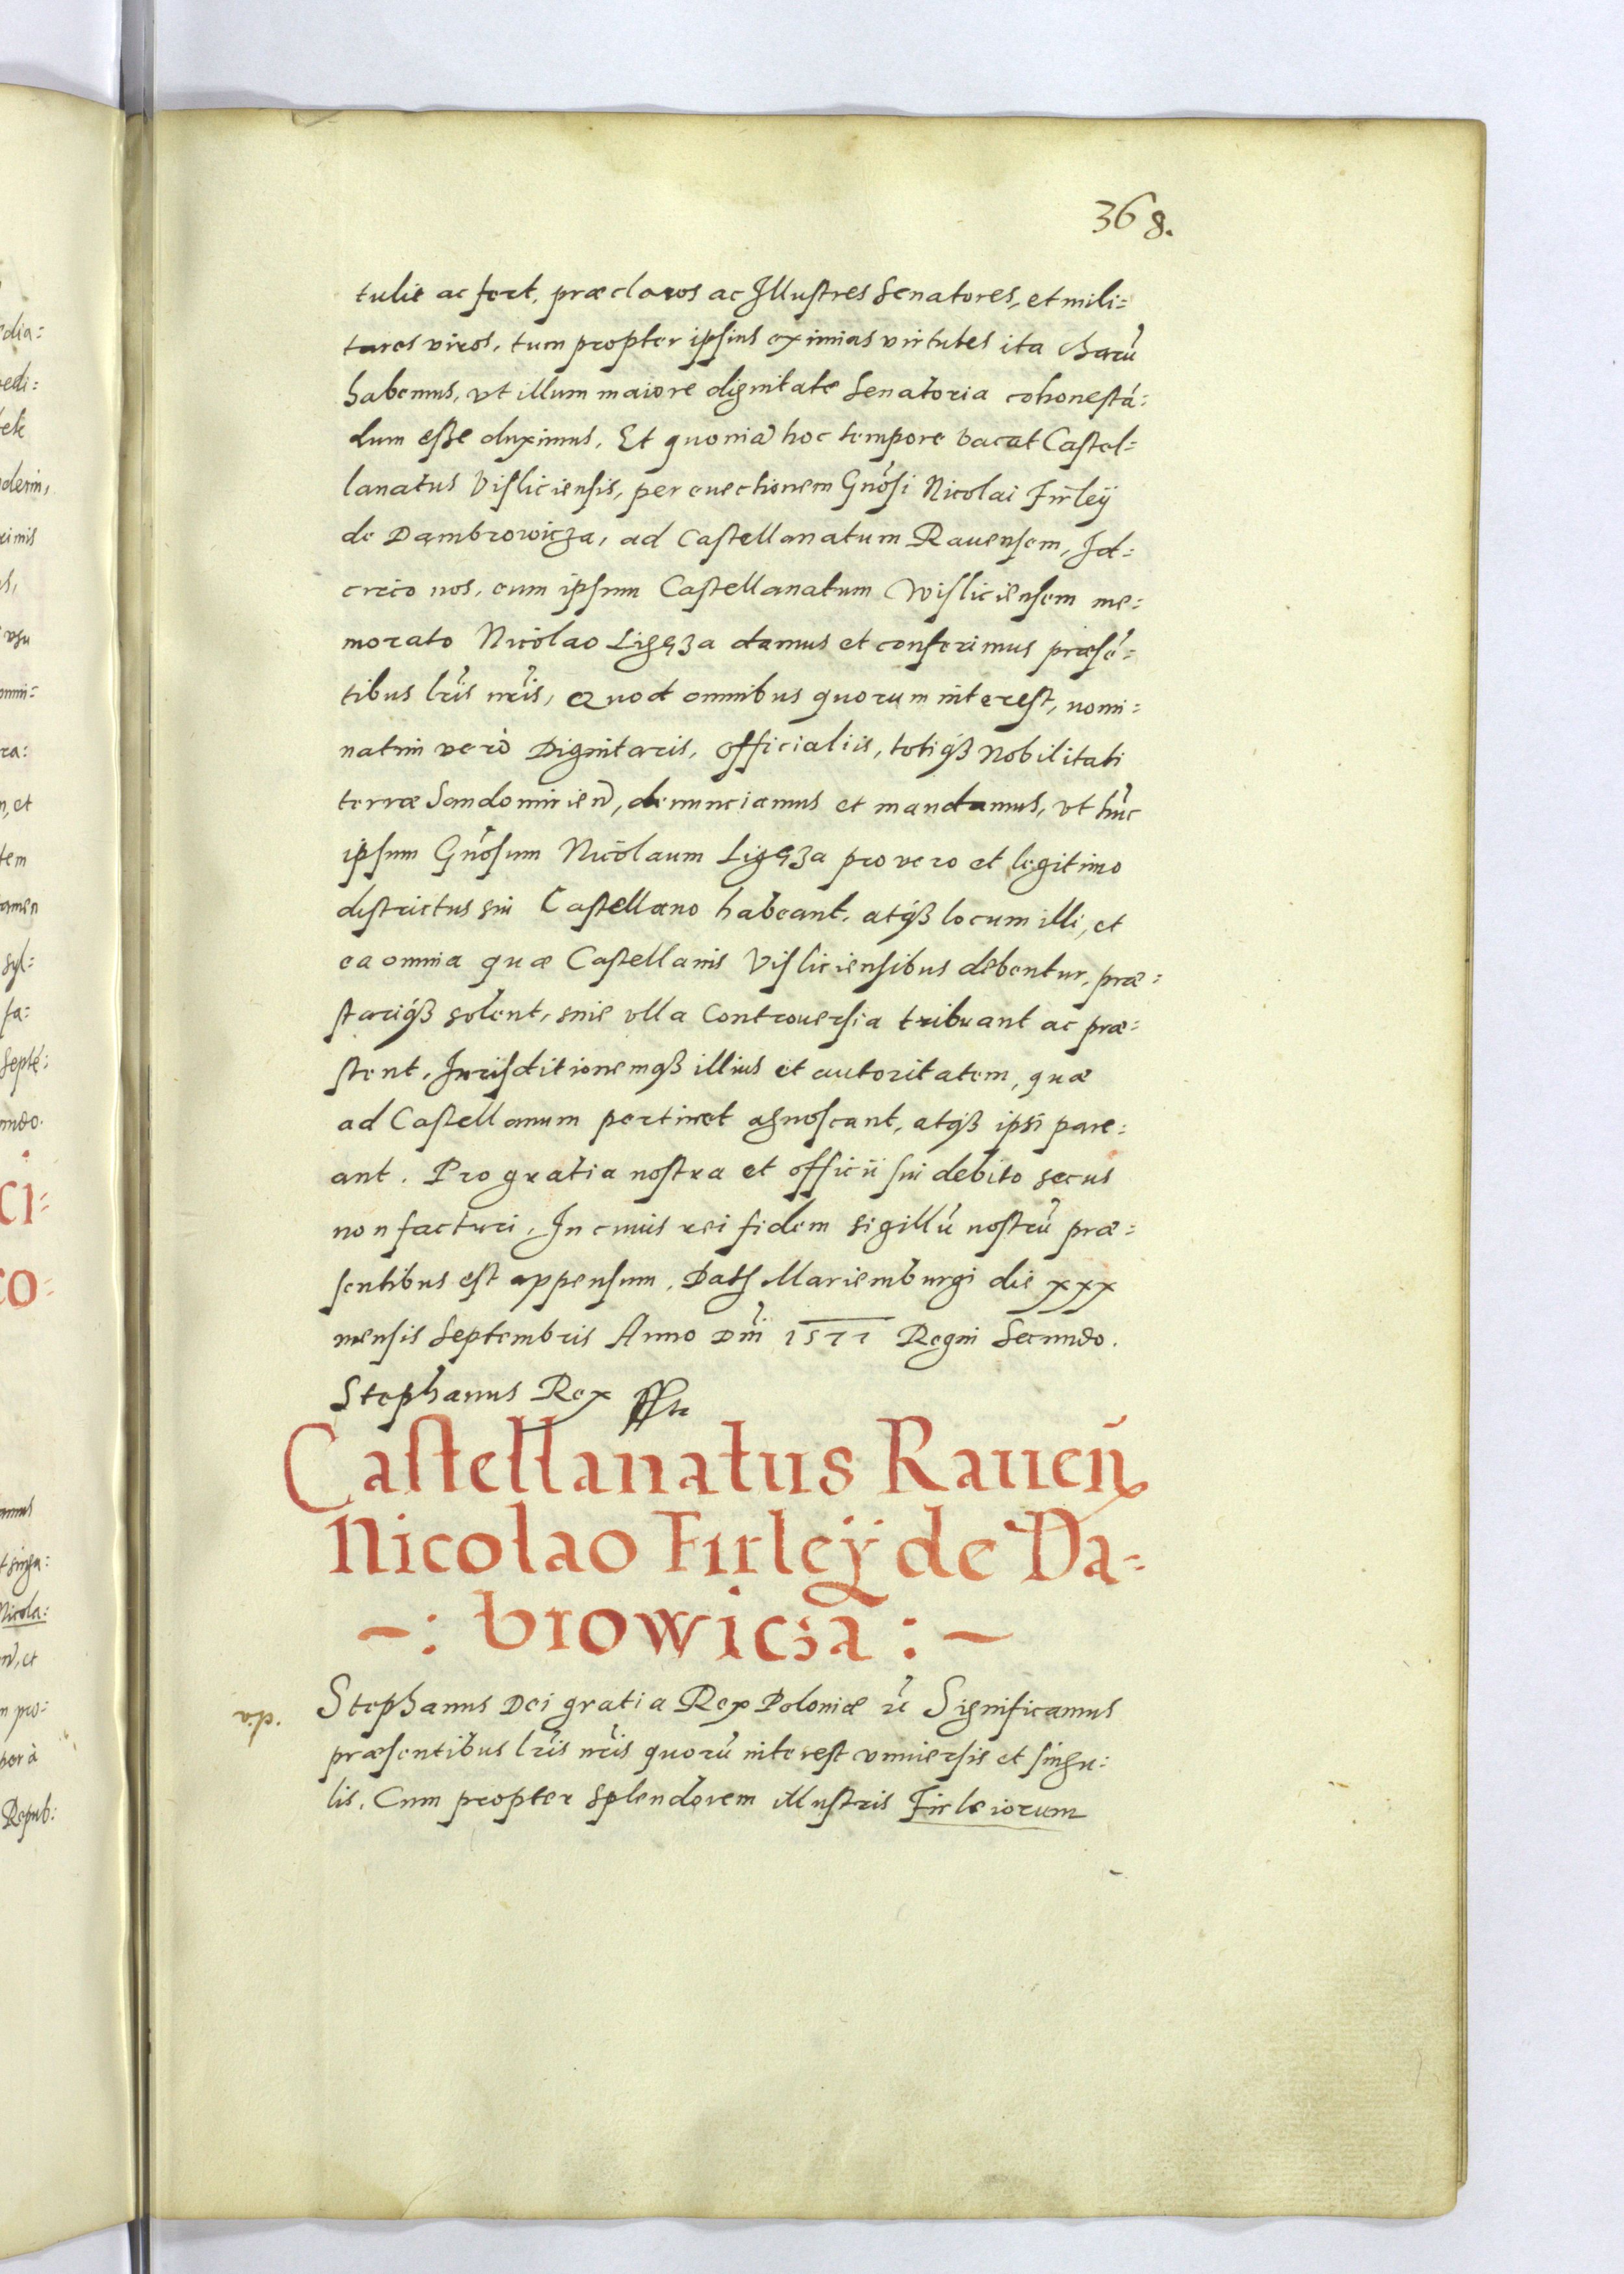 368.
tulit ac fert, præclaros ac Illustres Senatores, et mili=
tares viros, tum propter ipsius eximias virtutes ita charū
habemus, vt illum maiore dignitate Senatoria cohonestā=
dum esse duximus. Et quoniā hoc tempore vacat Castel=
lanatus Visliciensis, per euectionem Gnōsi Nicolai Firleÿ
de Dambrowicza, ad Castellanatum Rauensem, Id=
circo nos, eum ipsum Castellanatum Wisliciensem me=
morato Nicolao Ligęza damus et conferimus præsē=
tibus lr̄is nr̄is, Quod omnibus quorum interest, nomi=
natim verò Dignitaris, officialiis, totiqȝ Nobilitati
terræ Sandomirien̄, denunciamus et mandamus, vt hūc
ipsum Gnōsum Nicolaum Ligęza pro vero et legitimo
districtus sui Castellano habeant, atqȝ locum illi, et
ea omnia quæ Castellanis Visliciensibus debentur, præ=
stariqȝ solent, sine vlla Controuersia tribuant ac præ=
stent, Jurisditionemqȝ illius et autoritatem, quæ
ad Castellanum pertinet agnoscant, atqȝ ipsi pare=
ant. Pro gratia nostra et officii sui debito secus
non facturi. In cuius rei fidem sigillū nostrū præ=
sentibus est appensum. Datȝ Mariemburgi die xxx
mensis Septembris Anno Dn̄i 1577 Regni Secundo.
Stephanus Rex
Castellanatus Rauen̄
Nicolao Firleÿ de Da=
~: browicza :~
Stephanus Dei gratia Rex Poloniæ rc̄ Significamus
præsentibus lr̄is nr̄is quorū interest vniuersis et singu=
lis. Cum propter splendorem illustris Firleiorum